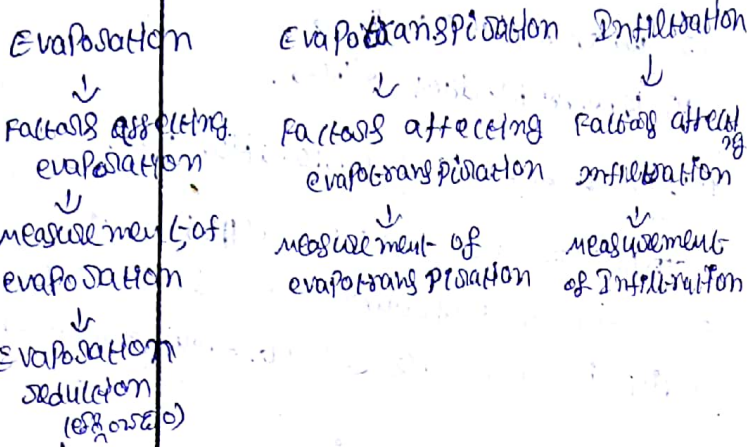 Evaporation
↓
Factors affecting
evaporation
↓
Measurement of
evaporation
↓
Evaporation
reduction
Evapotranspiration
↓
Factors affecting
evapotranspiration
↓
Measurement of
evapotranspiration
Infiltration
↓
Factors affecting
infiltration
↓
Measurement
of Infiltration